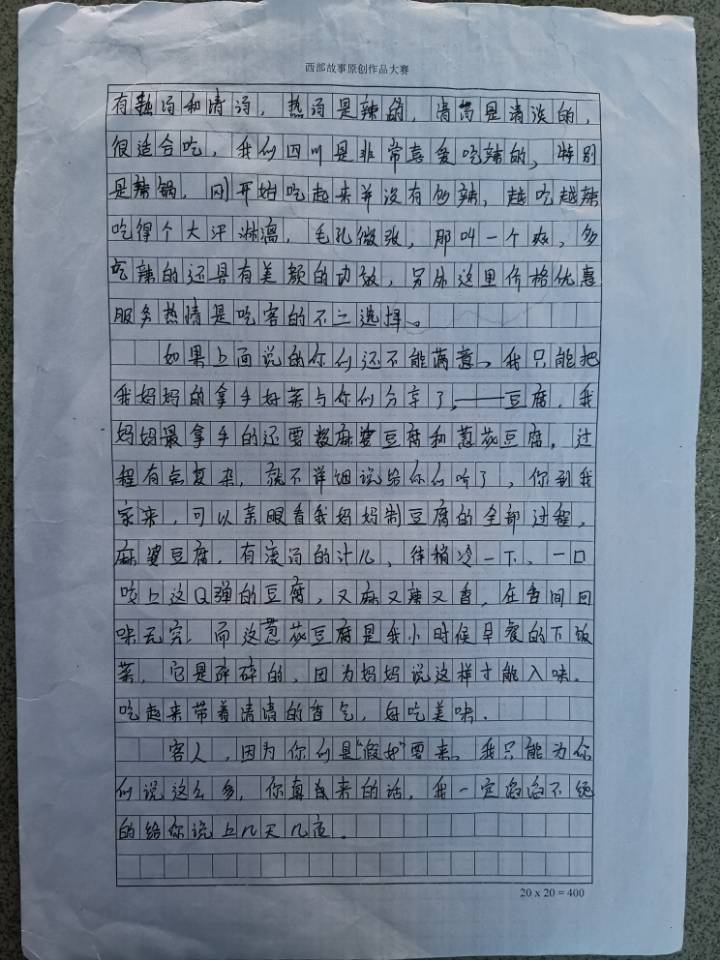 西部故事原创作品大赛
有热汤和清汤，热汤是辣的，清汤是清淡的，
很适合吃，我们四川是非常喜爱吃辣的，特别
是辣锅，刚开始吃起来并没有多辣，越吃越辣
吃得个大汗淋漓，毛孔微张，那叫一个爽，多
吃辣的还具有美颜的功效，另外这里价格优惠
服务热情是吃客的不二选择。
如果上面说的你们还不能满意，我只能把
我妈妈的拿手好菜与你们分享了，——豆腐，我
妈妈最拿手的还要数麻婆豆腐和葱花豆腐，过
程有点复杂，就不详细说给你们听了，你到我
家来，可以亲眼看我妈妈制豆腐的全部过程。
麻婆豆腐，有滚汤的汁儿，待稍冷一下，一口
咬上这Q弹的豆腐，又麻又辣又香，在舌间回
味无穷，而这葱花豆腐是我小时候早餐的下饭
菜，它是碎碎的，因为妈妈说这样才能入味。
吃起来带着清清的香气，好吃美味．
客人，因为你们是“假如”要来，我只能为你
们说这么多，你真要来的话，我一定滔滔不绝
的给你说上几天几夜。
20 x 20 = 400